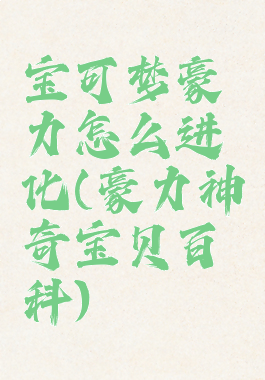 宝可梦豪
力怎么进
化(豪力神
奇宝贝百
科)